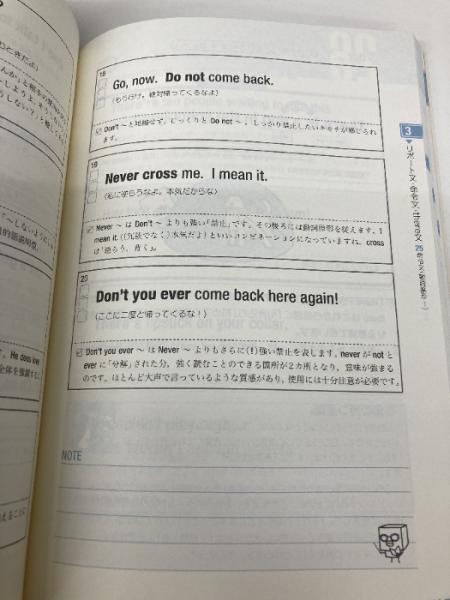 18
Go, now. Do not come back.
(もう行け。絶対帰ってくるなよ)
Don't ~ と短縮せず、じっくりと Do not ~ 。しっかり禁止したいキモチが感じられ
ます。
19
Never cross me. I mean it.
(私に逆らうなよ。本気だからな)
Never ~ は Don't ~ よりも強い「禁止」です。その後ろには動詞原形を従えます。I
mean it. (冗談でなく)本気だよ) といいコンビネーションになっていますね。cross
は「逆らう、背く」。
20
Don't you ever come back here again!
(ここに二度と帰ってくるな!)
Don't you ever ~ は Never ~ よりもさらに(!)強い禁止を表します。never が not と
ever に「分解」された分、強く読むことのできる箇所が2カ所となり、意味が強まる
のです。ほとんど大声で言っているような質感があり、使用には十分注意が必要です。
NOTE
3
リポート文・命令文
He does love